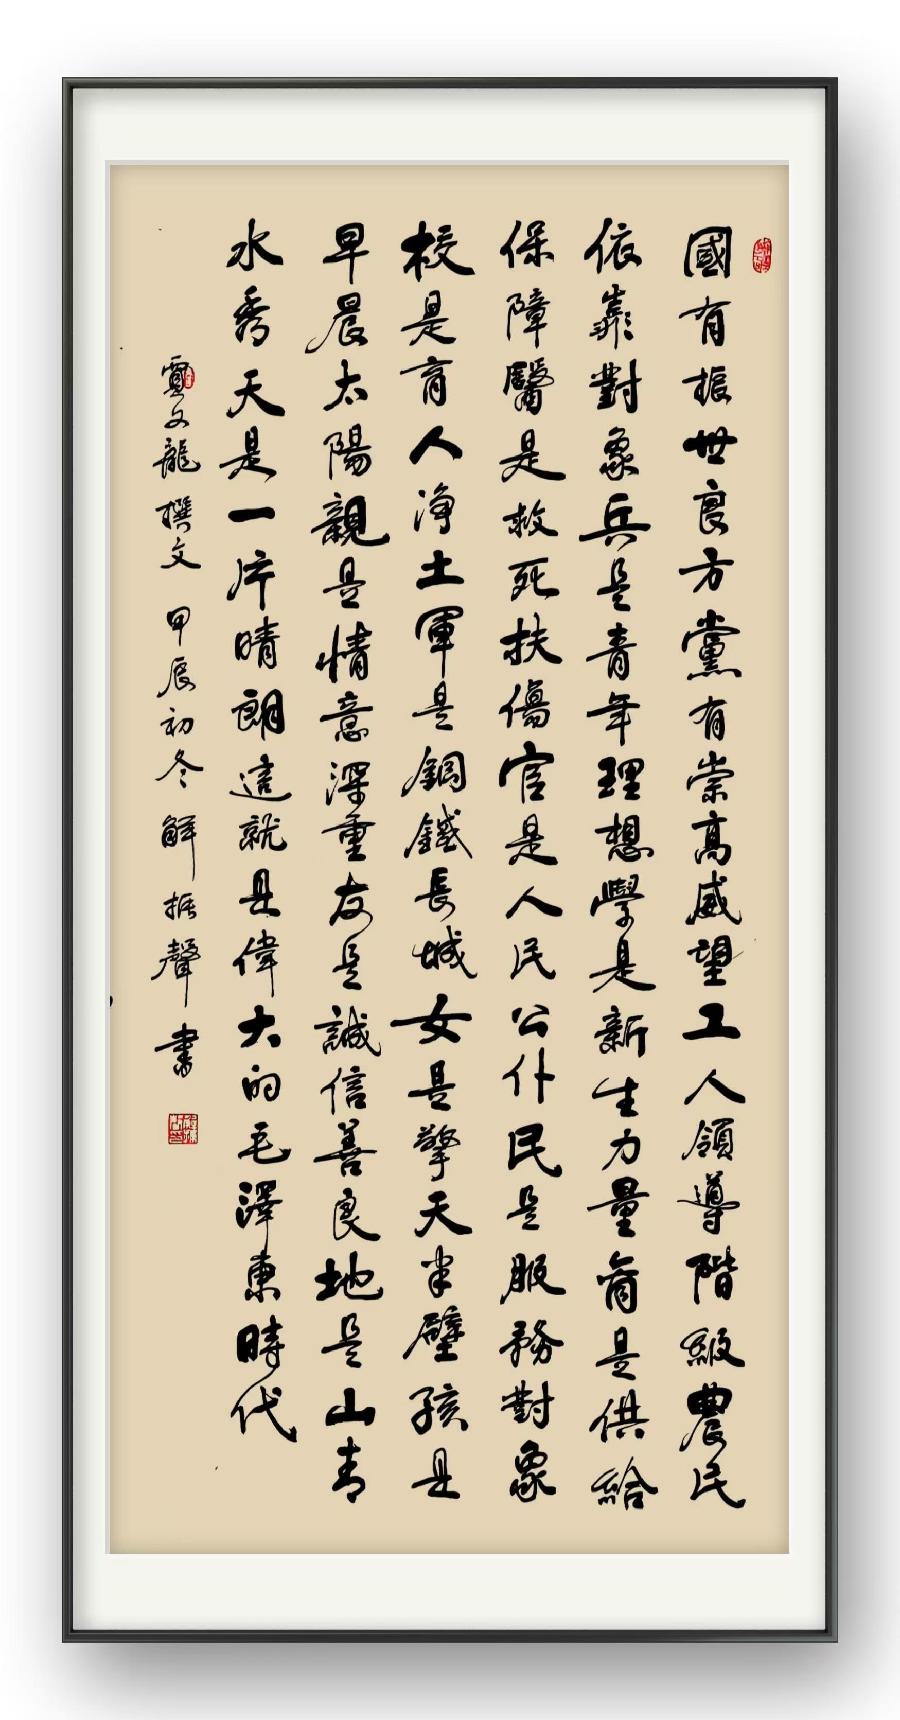 國有振世良方黨有崇高威望工人領導階級農民
依靠對象兵是青年理想學是新生力量商是供給
保障醫是救死扶傷官是人民公仆民是服務對象
校是育人净土軍是鋼鐵長城女是擎天半壁孩是
早晨太陽親是情意深重友是誠信善良地是山青
水秀天是一片晴朗這就是偉大的毛澤東時代
文龍撰文 甲辰初冬 解振聲書